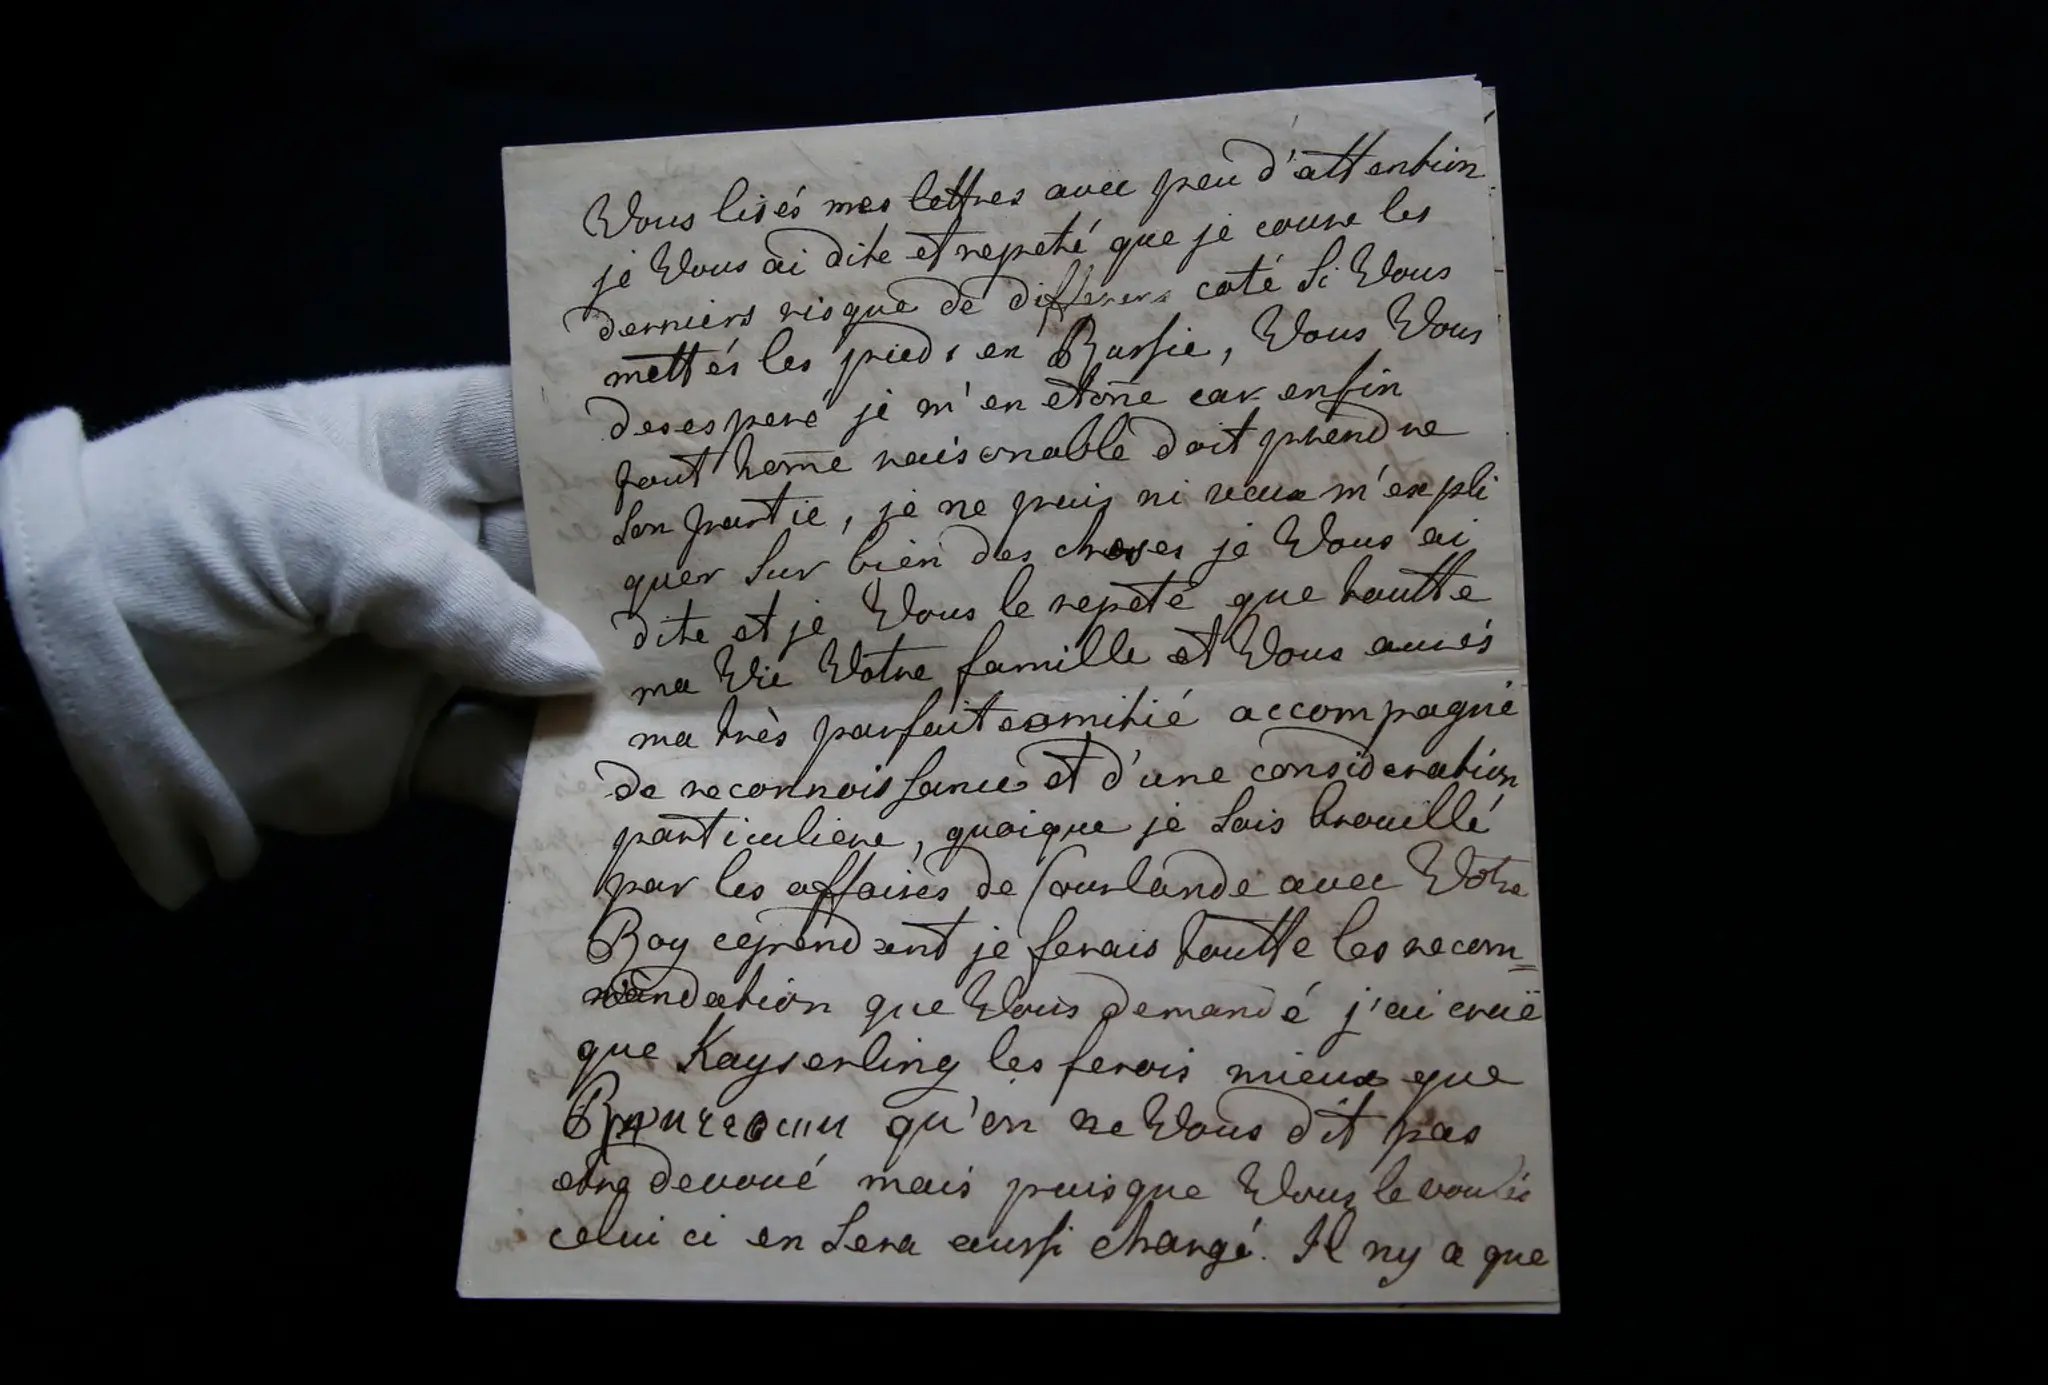 Vous lisés mes lettres avec peu d'attention
je Vous ai dite et repeté que je coure les
derniers risque de differens coté Si Vous
mettés les pieds en Russie, Vous Vous
desesperé je m'en etoñe car enfin
tout home raisonable doit prendre
Son partie, je ne puis ni veux m'expli
quer Sur bien des choses je Vous ai
dite et je Vous le repeté que toutte
ma Vie Votre famille et Vous aurés
ma très parfaite amitié accompagné
de reconnoissance et d'une consideration
particuliere, quoique je Sois brouillé
par les affaires de Courlande avec Votre
Roy cependent je ferais toutte les recom=
mendation que Vous demandé j'ai cruë
que Kayserling les ferois mieux que
qu'on ne Vous dit pas
etre devoué mais puisque Vous le voulés
celui ci en Sera aussi chargé. Il ny a que